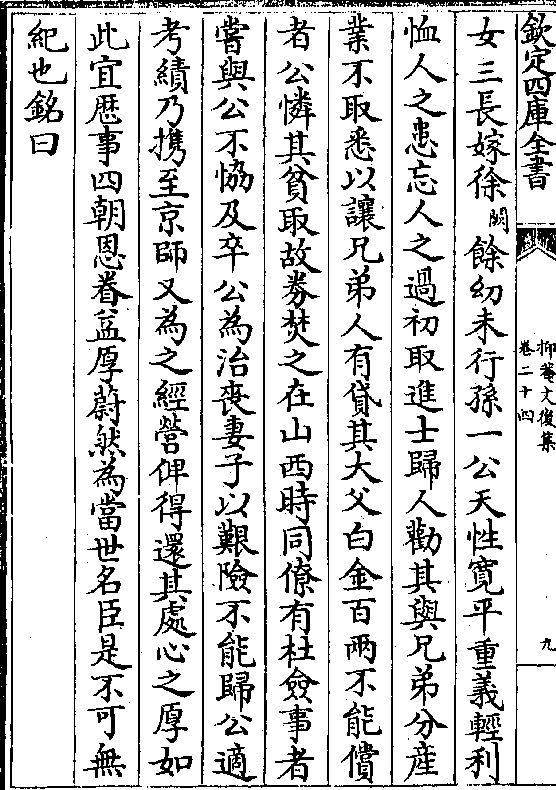 欽定四庫全書
抑菴文後集
卷二十四
九
女三長嫁徐闕餘幼未行孫一公天性寛平重義輕利
恤人之患忘人之過初取進士歸人勸其與兄弟分産
業不取悉以讓兄弟人有貸其大父白金百兩不能償
者公憐其貧取故劵焚之在山西時同僚有杜僉事者
嘗與公不恊及卒公為治喪妻子以艱險不能歸公適
考績乃携至京師又為之經營俾得還其處心之厚如
此宜歴事四朝恩眷益厚蔚然為當世名臣是不可無
紀也銘曰